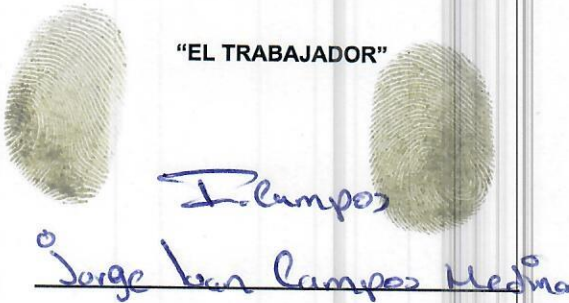 “EL TRABAJADOR”
I. Campos
Jorge Ivan Campos Medina